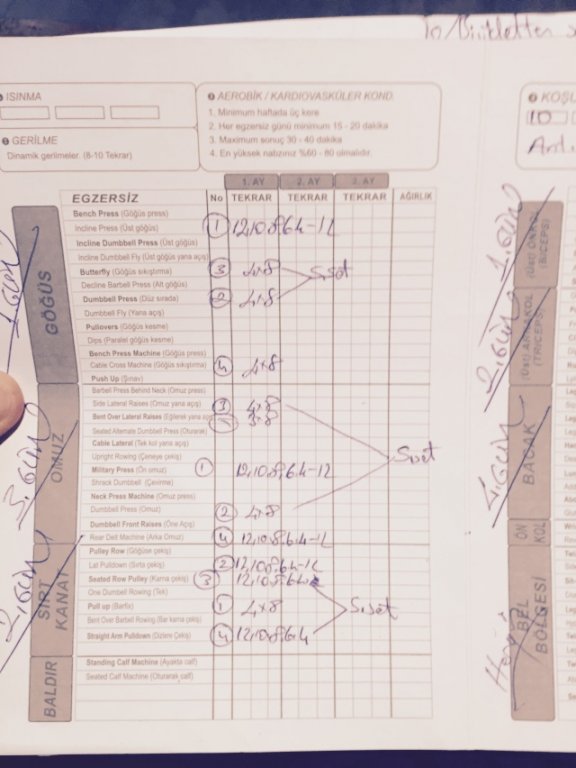 To Bisikletten
ISINMA
GERİLME
Dinamik gerilmeler. (8-10 Tekrar)
AEROBİK / KARDİOVASKÜLER KOND.
1. Minimum haftada üç kere
2. Her egzersiz günü minimum 15 - 20 dakika
3. Maximum sonuç 30 - 40 dakika
4. En yüksek nabzınız %60 - 80 olmalıdır.
KOŞU
10
1. AY 2. AY 3. AY
EGZERSİZ No TEKRAR TEKRAR TEKRAR AĞIRLIK
1.GÜN
GÖĞÜS
Bench Press (Göğüs press)
Incline Press (Üst göğüs) 1 12,10,8,6,4-12
Incline Dumbbell Press (Üst göğüs)
Incline Dumbell Fly (Üst göğüs yana açış)
Butterfly (Göğüs sıkıştırma) 3 4x8
S.set
Decline Barbell Press (Alt göğüs)
Dumbell Press (Düz sırada) 2 4x8
Dumbbell Fly (Yana açış)
Pullovers (Göğüs kesme)
Dips (Paralel göğüs kesme)
Bench Press Machine (Göğüs press)
Cable Cross Machine (Göğüs sıkıştırma) 4 4x8
Push Up (Şınav)
3.GÜN
OMUZ
Barbell Press Behind Neck (Omuz press)
Side Lateral Raises (Omuz yana açış) 3 4x8
Bent Over Lateral Raises (Eğilerek yana açış) 3x8
Seated Alternate Dumbbell Press (Oturarak)
Cable Lateral (Tek kol yana açış)
Upright Rowing (Çeneye çekiş)
S.set
Military Press (Ön omuz) 1 12,10,8,6,4-12
Shrack Dumbbell (Çevirme)
Neck Press Machine (Omuz press)
Dumbbell Press (Omuz) 2 4x8
Dumbbell Front Raises (Öne Açış)
Rear Delt Machine (Arka Omuz) 4 12,10,8,6,4-12
2.GÜN
SIRT
KANAT
Pulley Row (Göğüse çekiş)
Lat Pulldown (Sırta çekiş) 2 12,10,8,6,4-12
Seated Row Pulley (Karna çekiş) 3 12,10,8,6,4
One Dumbell Rowing (Tek)
Pull up (Barfix) 1 4x8
S.set
Bent Over Barbell Rowing (Bar karna çekiş)
Straight Arm Pulldown (Dizlere Çekiş) 4 12,10,8,6,4
BALDIR
Standing Calf Machine (Ayakta calf)
Seated Calf Machine (Oturarak calf)
1.GÜN
(Üst) ÖNKOL
(BICEPS)
2.GÜN
(Üst) ARKAKOL
(TRICEPS)
4.GÜN
BACAK
ÖN
KOL
BEL
BÖLGESİ